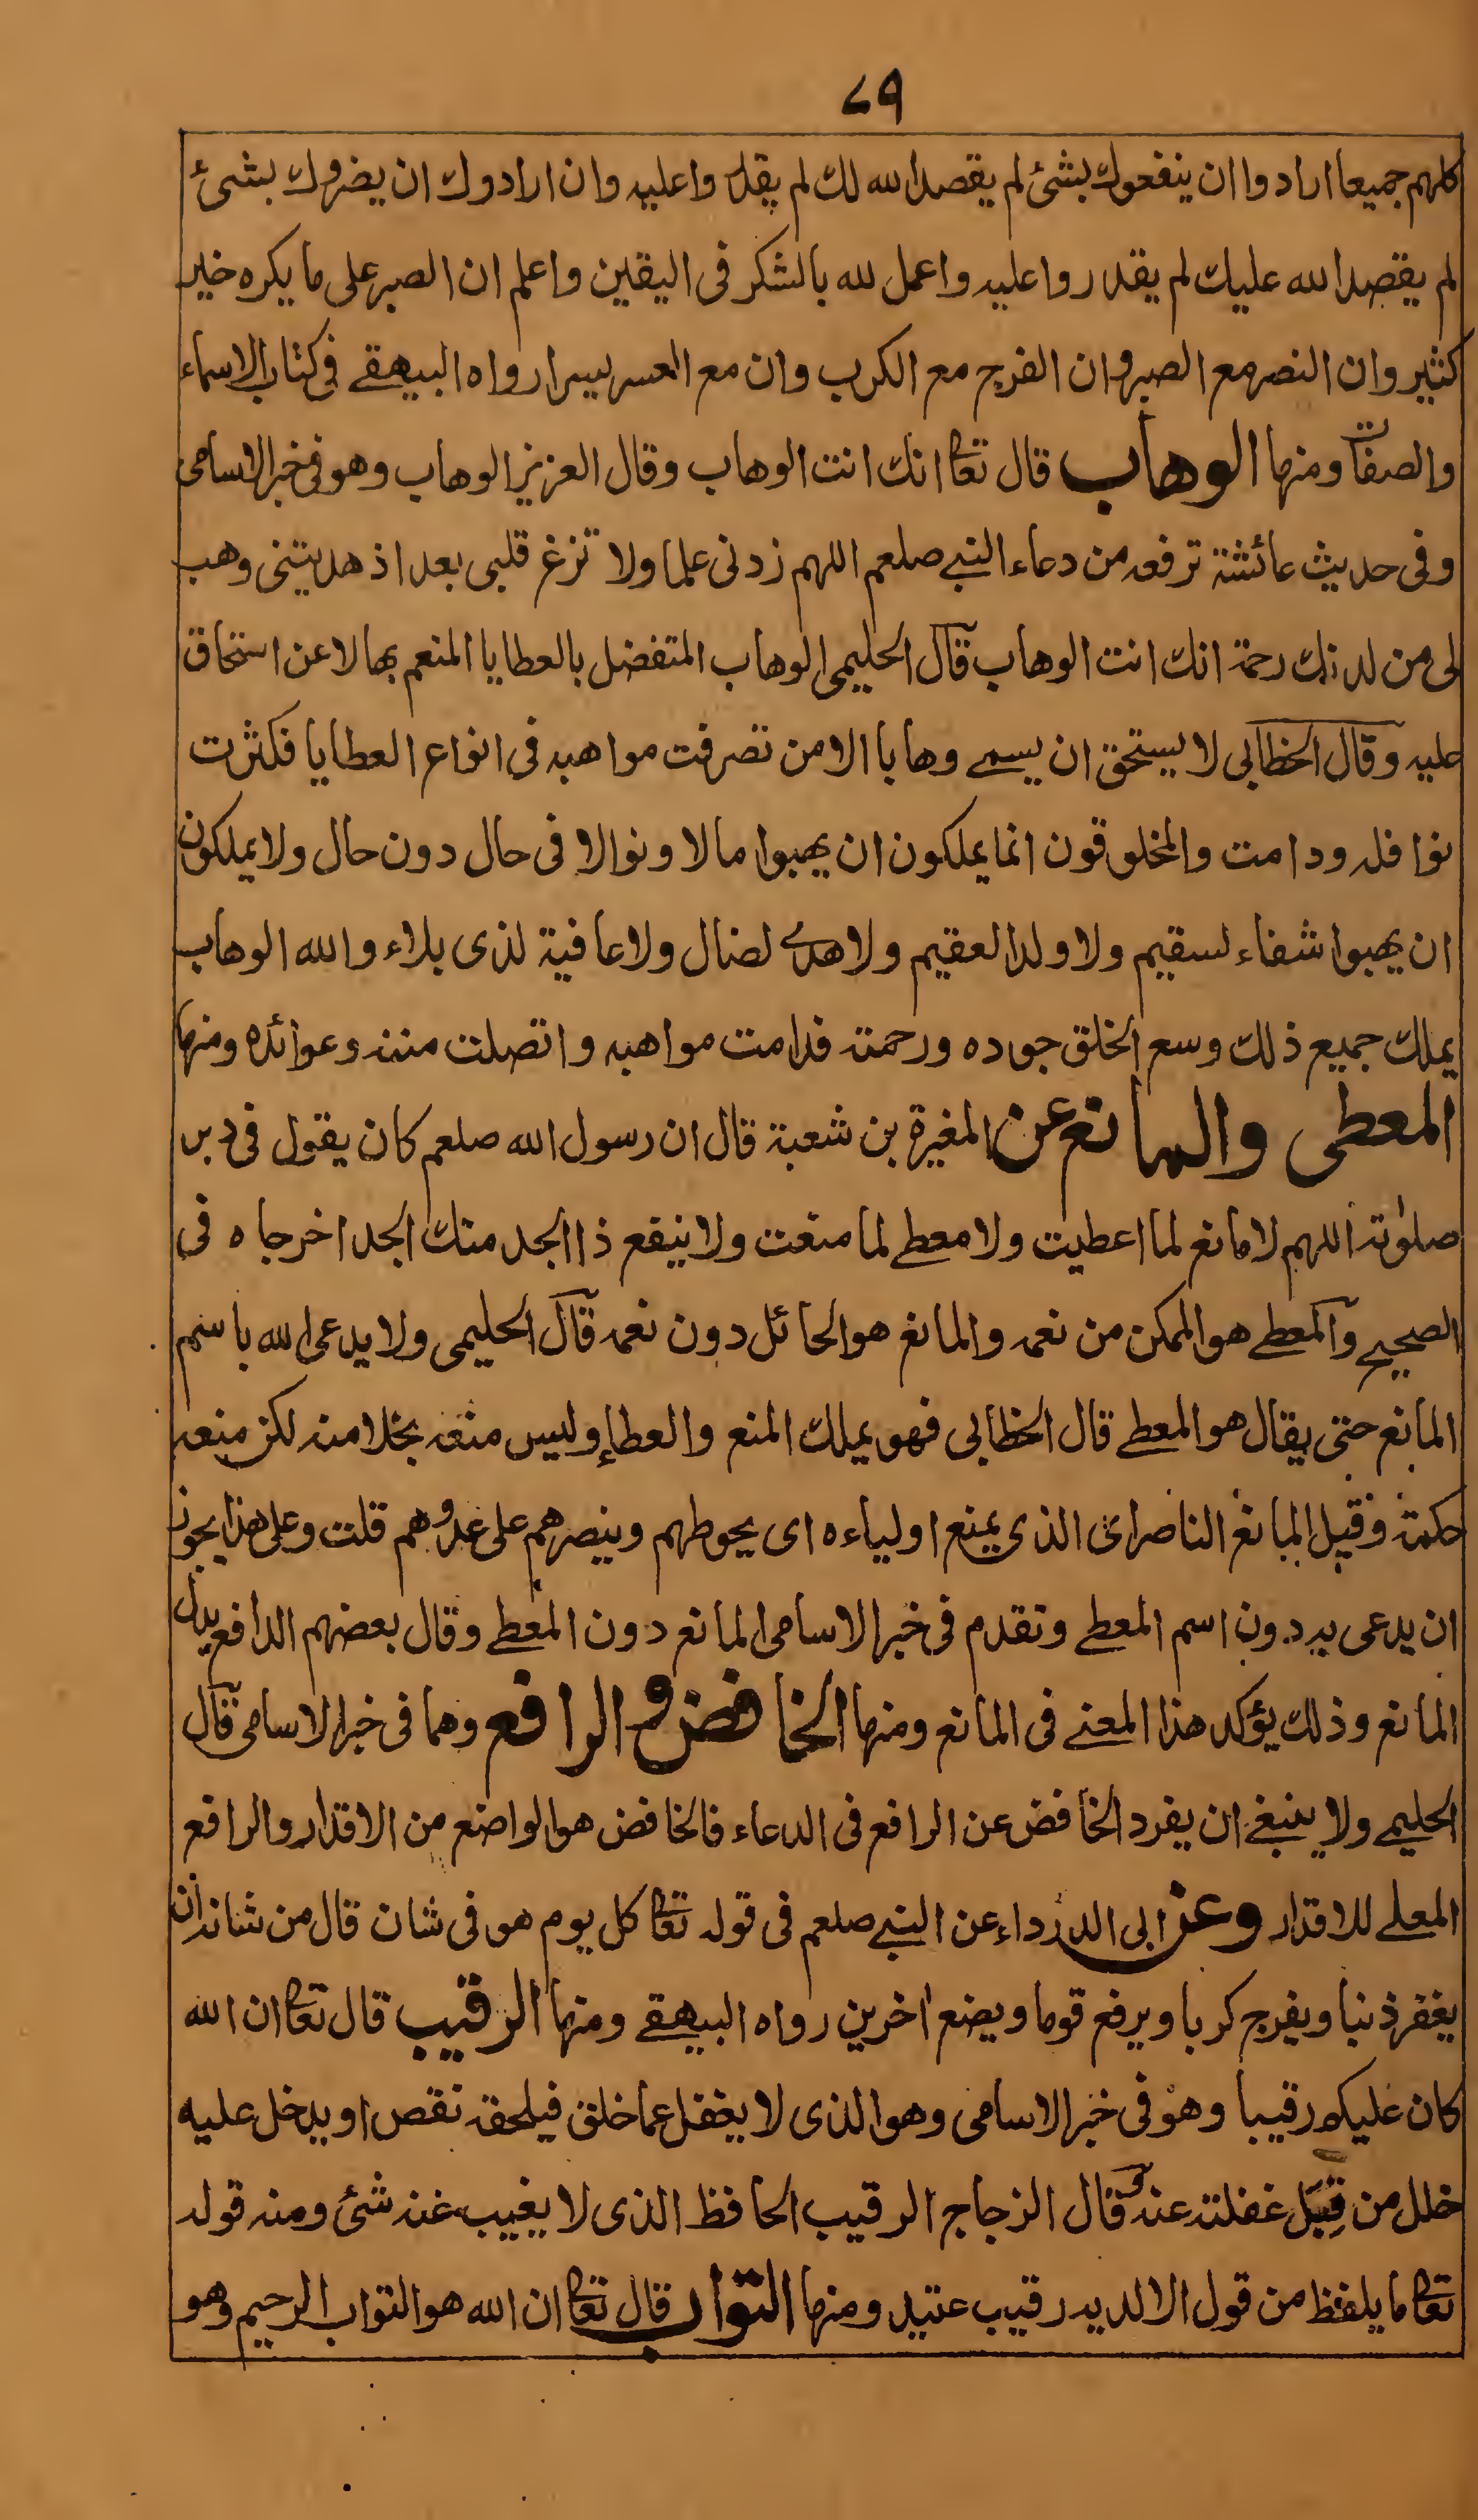 ٧٩
كلهم جميعا ارادوا ان ينفعوك بشئ لم يقصد الله لك لم يقدروا عليه وان ارادوك ان يضروك بشئ
لم يقصد الله عليك لم يقدروا عليه واعمل لله بالشكر فى اليقين واعلم ان الصبر على ما يكره خير
كثير وان النصر مع الصبر وان الفرج مع الكرب وان مع العسر يسرا رواه البيهقے فى كتاب الاسماء
والصفات ومنها الوهاب قال تعا انك انت الوهاب وقال العزيز الوهاب وهو فى خبر الاسامى
وفى حديث عائشة ترفعه من دعاء النبے صلعم اللهم زدنى علما ولا تزغ قلبى بعد اذ هديتنى وهب
لى من لدنك رحمة انك انت الوهاب قال الحليمى الوهاب المتفضل بالعطايا المنعم بها لا عن استحقاق
عليه وقال الخطابى لا يستحق ان يسمے وهابا الا من تصرفت مواهبه فى انواع العطايا فكثرت
نوافله ودامت والمخلوقون انما يملكون ان يهبوا مالا ونوالا فى حال دون حال ولا يملكون
ان يهبوا شفاء لسقيم ولا ولدا لعقيم ولا هدے لضال ولا عافية لذى بلاء والله الوهاب
يملك جميع ذلك وسع الخلق جوده ورحمته فدامت مواهبه واتصلت مننه وعوائده ومنها
المعطى والمانع عن المغيرة بن شعبة قال ان رسول الله صلعم كان يقول فى دبر
صلوته اللهم لا مانع لما اعطيت ولا معطے لما منعت ولا ينفع ذا الجد منك الجد اخرجاه فى
الصحيح والمعطے هو الممكن من نعمه والمانع هو الحائل دون نعمه قال الحليمى ولا يدعى الله باسم
المانع حتى يقال هو المعطے قال الخطابى فهو يملك المنع والعطاء وليس منعه بخلا منه لكن منعه
حكمة وقيل المانع الناصر اى الذى يمنع اولياءه اى يحوطهم وينصرهم على عدوهم قلت وعلى هذا يجوز
ان يدعى به دون اسم المعطے وتقدم فى خبر الاسامى المانع دون المعطے وقال بعضهم الدافع بدل
المانع وذلك يؤكد هذا المعنے فى المانع ومنها الخافض و الرافع وهما فى خبر الاسامى قال
الحليمے ولا ينبغے ان يفرد الخافض عن الرافع فى الدعاء فالخافض هو الواضع من الاقدار والرافع
المعلے للاقدار وعن ابى الدرداء عن النبے صلعم فى قوله تعا كل يوم هو فى شان قال من شانه ان
يغفر ذنبا ويفرج كربا ويرفع قوما ويضع اخرين رواه البيهقے ومنها الرقيب قال تعا ان الله
كان عليكم رقيبا وهو فى خبر الاسامى وهو الذى لا يغفل عما خلق فيلحقه نقص او يدخل عليه
خلل من قِبَل غفلته عنه وقال الزجاج الرقيب الحافظ الذى لا يغيب عنه شئ ومنه قوله
تعا ما يلفظ من قول الا لديه رقيب عتيد ومنها التواب قال تعا ان الله هو التواب الرحيم وهو